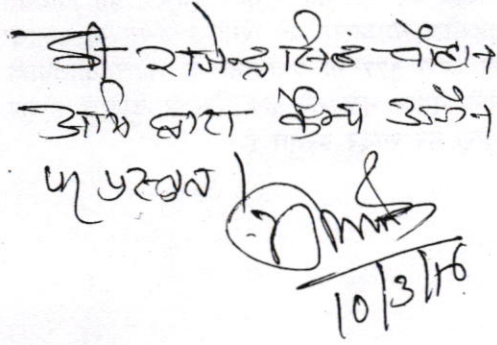 श्री राजेन्द्र सिंह चौहान
आज द्वारा कैम्प उज्जैन
पर प्रस्तुत।
10/3/16